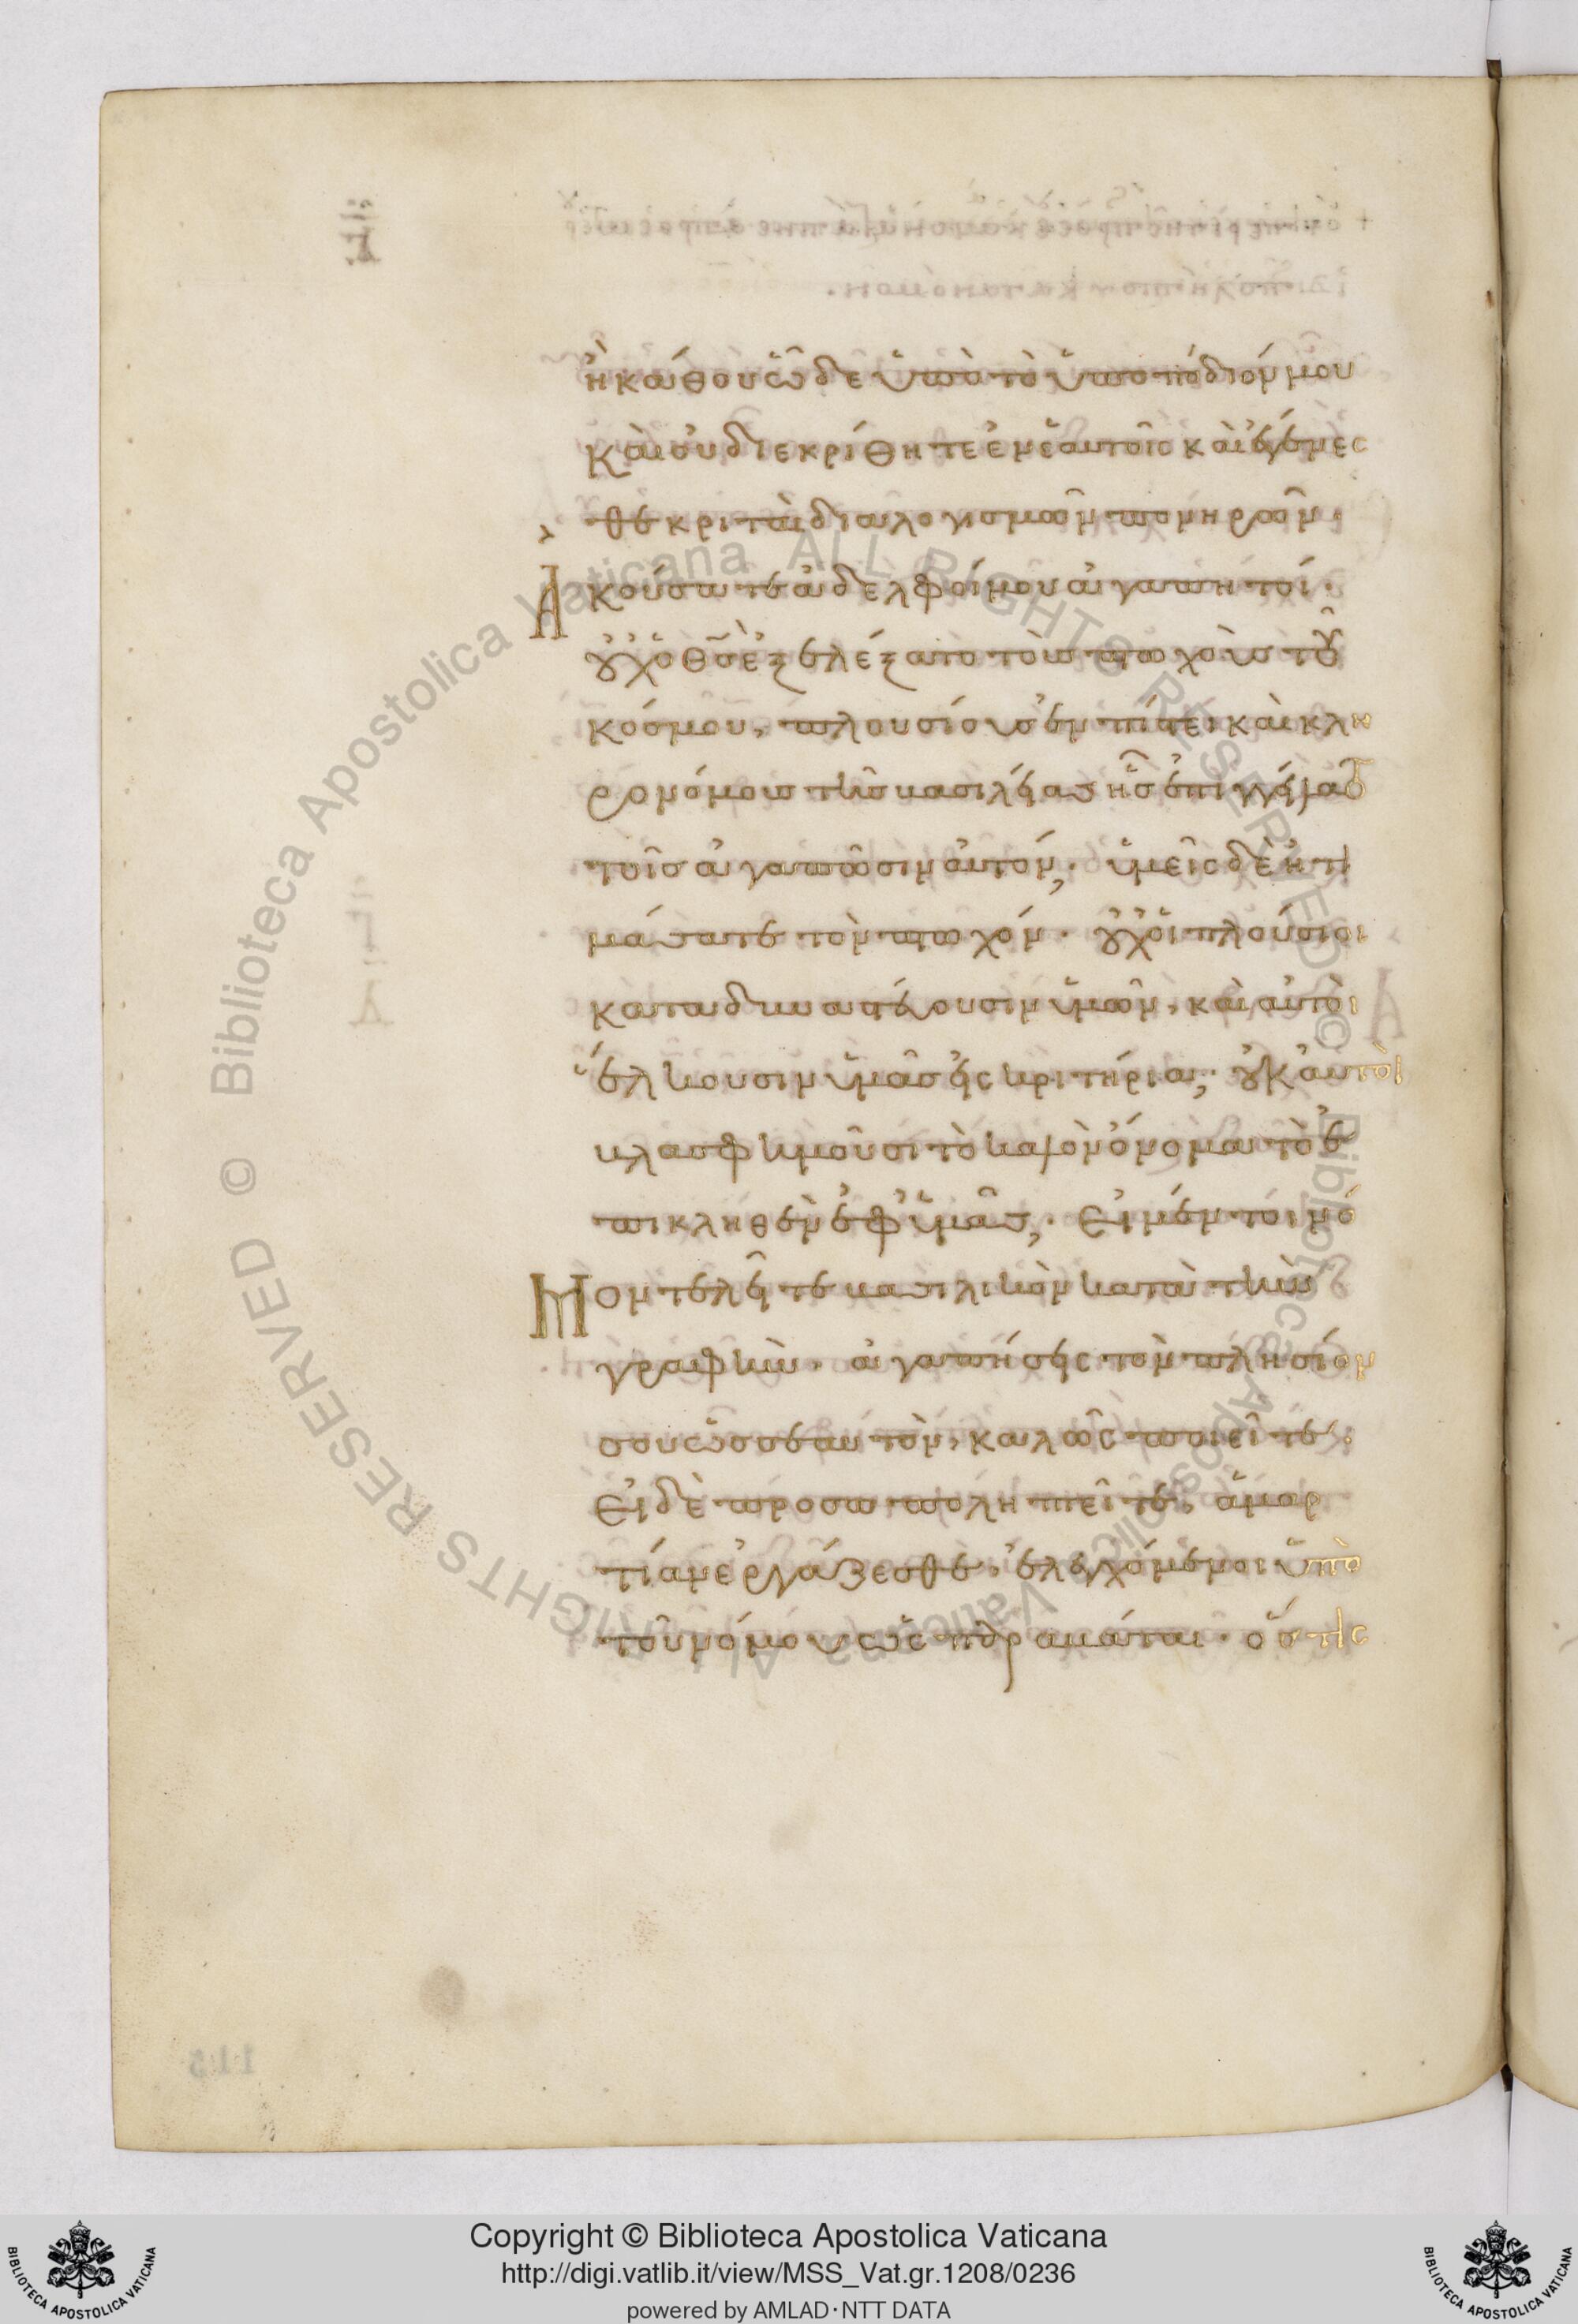 ἢ κάθου ὧδε ὑπὸ τὸ ὑποπόδιόν μου
καὶ οὐ διεκρίθητε ἐν ἑαυτοῖς καὶ ἐγένεσ
θε κριταὶ διαλογισμῶν πονηρῶν.
Ἀκούσατε ἀδελφοί μου ἀγαπητοί.
οὐχ ὁ θ̅ς̅ ἐξελέξατο τοὺς πτωχοὺς τοῦ
κόσμου, πλουσίους ἐν πίστει καὶ κλη
ρονόμους τῆς βασιλείας ἧς ἐπηγγείλατο
τοῖς ἀγαπῶσιν αὐτόν; ὑμεῖς δὲ ἠτι
μάσατε τὸν πτωχόν. οὐχ οἱ πλούσιοι
καταδυναστεύουσιν ὑμῶν, καὶ αὐτοὶ
ἕλκουσιν ὑμᾶς εἰς κριτήρια; οὐκ αὐτοὶ
βλασφημοῦσι τὸ καλὸν ὄνομα τὸ ἐ
πικληθὲν ἐφ' ὑμᾶς; Εἰ μέντοι νό
μον τελεῖτε βασιλικὸν κατὰ τὴν
γραφήν. ἀγαπήσεις τὸν πλησίον
σου ὡς σεαυτὸν, καλῶς ποιεῖτε.
Εἰ δὲ προσωποληπτεῖτε, ἁμαρ
τίαν ἐργάζεσθε. ἐλεγχόμενοι ὑπὸ
τοῦ νόμου ὡς παραβάται. ὅστις
Copyright © Biblioteca Apostolica Vaticana
http://digi.vatlib.it/view/MSS_Vat.gr.1208/0236
powered by AMLAD·NTT DATA